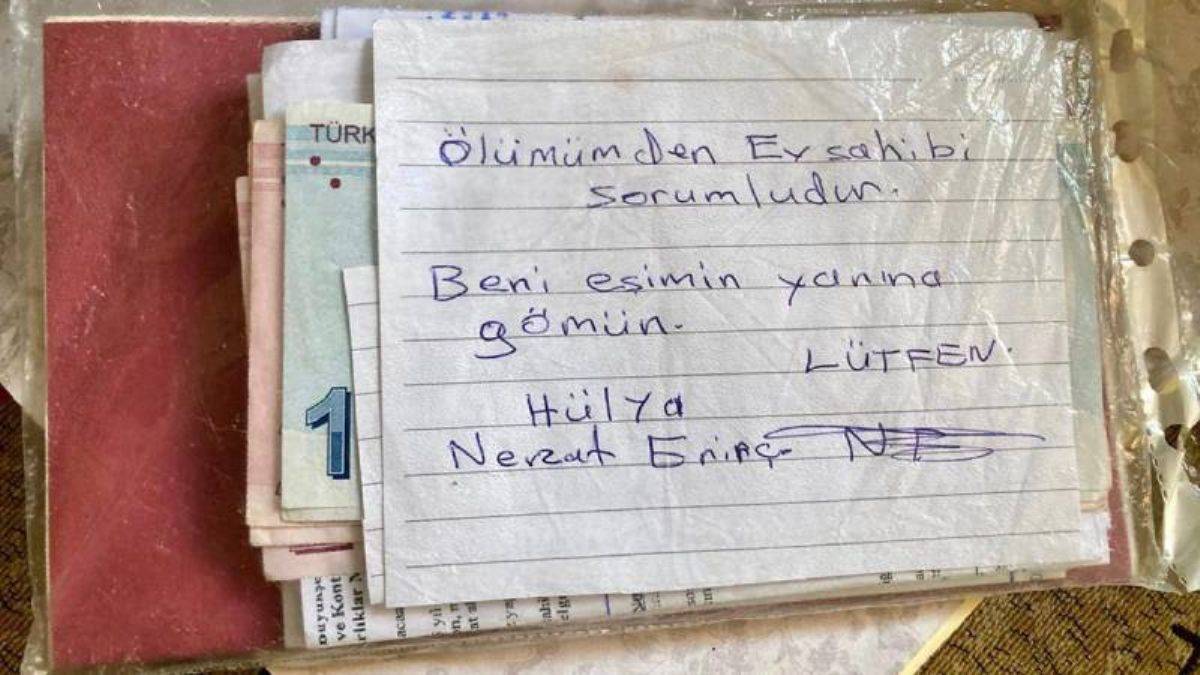 TÜRK
1
Ölümümden Ev sahibi
sorumludur.
Beni eşimin yanına
gömün.
LÜTFEN.
Hülya
Nevzat Erinç
ve Kont